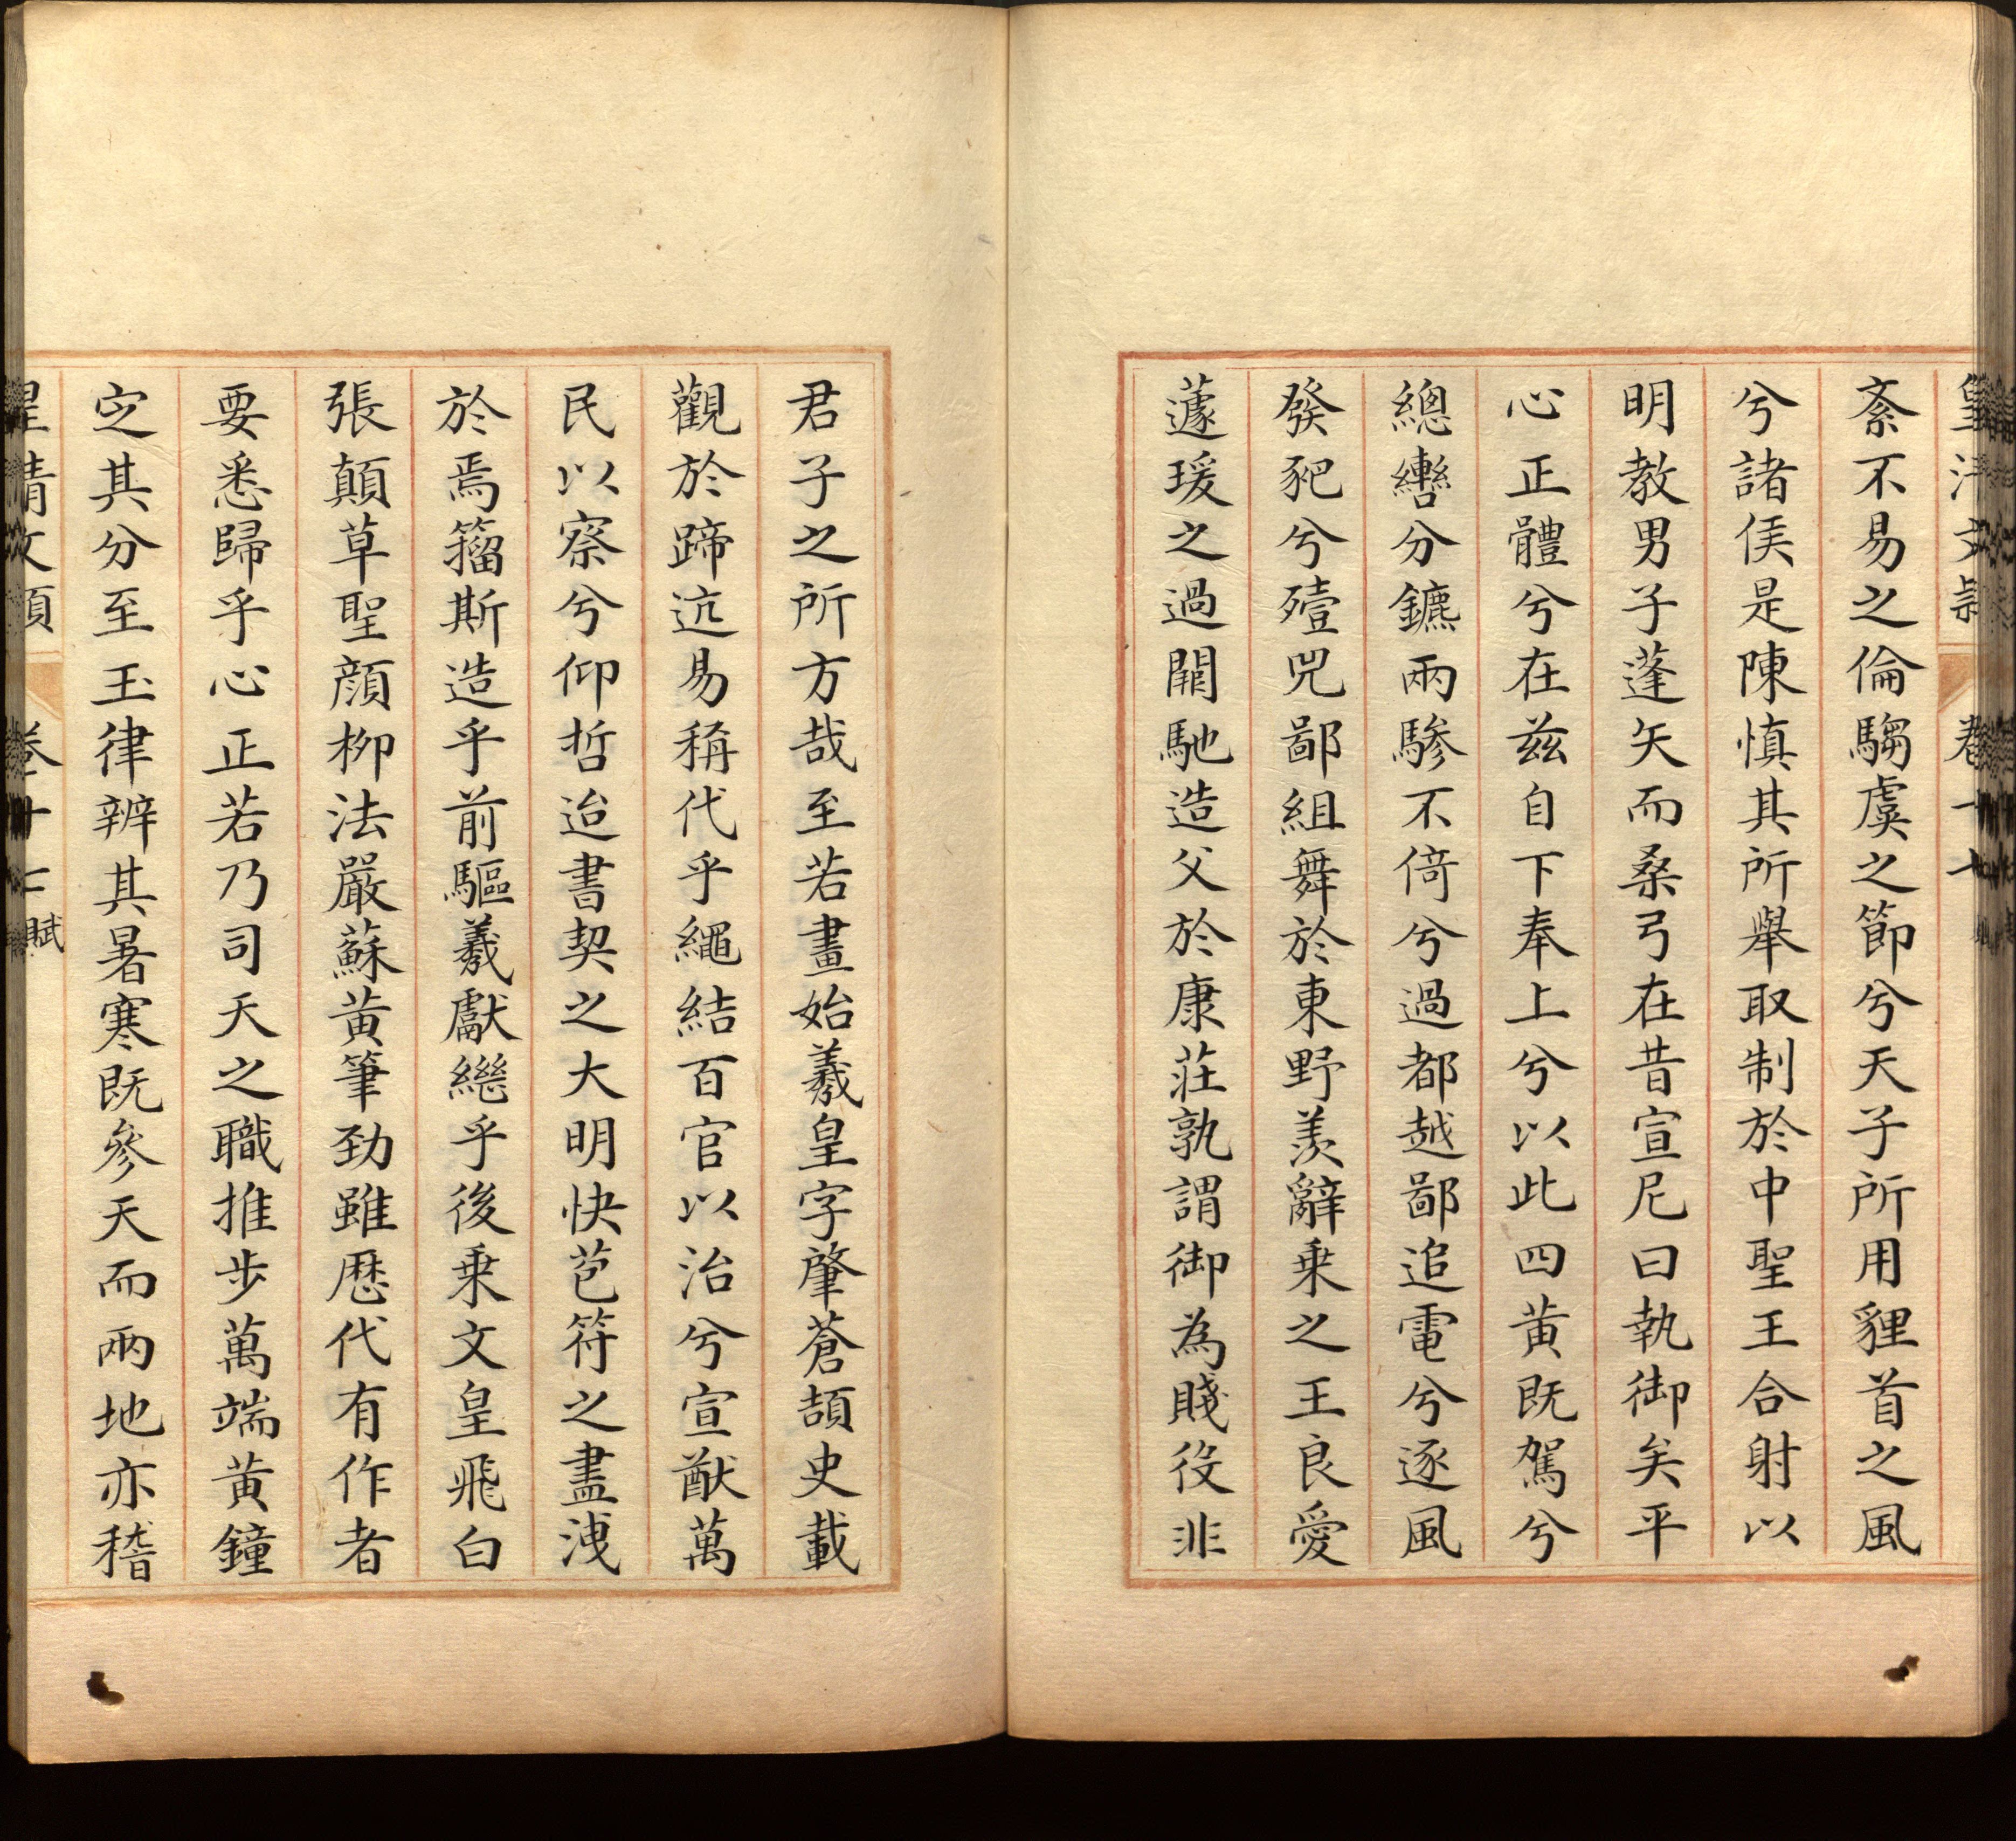 皇清文穎 卷十七
紊不易之倫騶虞之節兮天子所用貍首之風
兮諸侯是陳慎其所舉取制於中聖王合射以
明教男子蓬矢而桑弓在昔宣尼曰執御矣平
心正體兮在兹自下奉上兮以此四黄既駕兮
總轡分鑣兩驂不倚兮過都越鄙追電兮逐風
發豝兮殪兕鄙組舞於東野羨辭乗之王良愛
蘧瑗之過闕馳造父於康莊孰謂御為賤役非
君子之所方哉至若畫始羲皇字肇蒼頡史載
觀於蹄迒易稱代乎繩結百官以治兮宣猷萬
民以察兮仰哲迨書契之大明快苞符之盡洩
於焉籀斯造乎前驅羲獻繼乎後乗文皇飛白
張顛草聖顔栁法嚴蘇黄筆勁雖歴代有作者
要悉歸乎心正若乃司天之職推步萬端黄鐘
定其分至玉律辨其暑寒既參天而兩地亦稽
皇清文穎 卷十七 賦